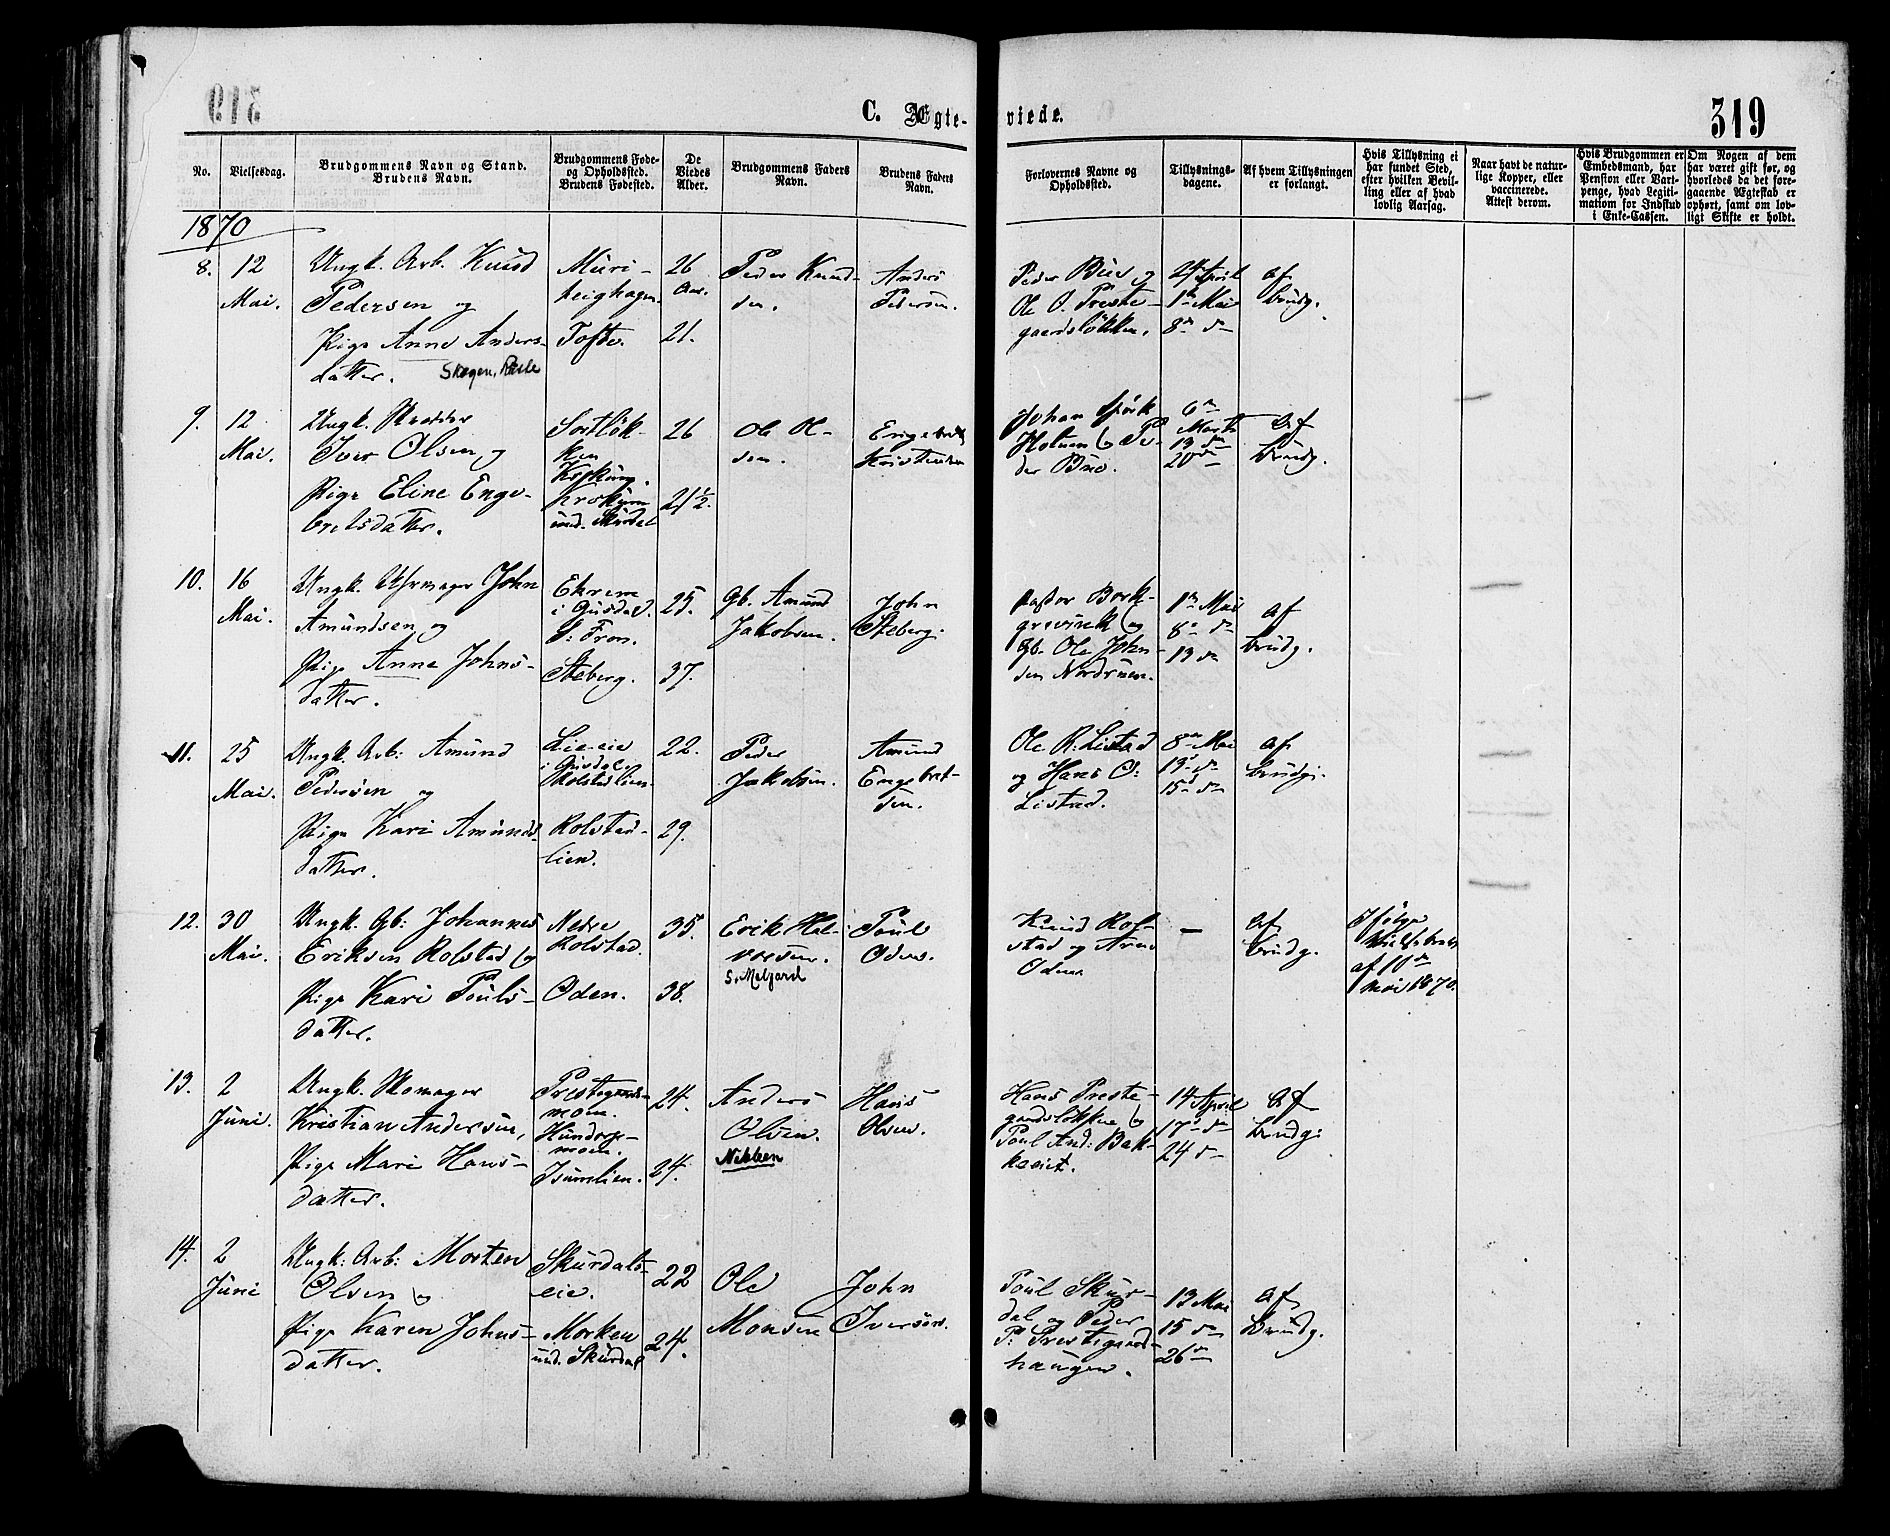 C. Ægte-
viede.
319
No.
Vielsesdag.
Brudgommens Navn og Stand.
Brudens Navn.
Brudgommens Føde-
og Opholdssted.
Brudens Fødested.
De
Viedes
Alder.
Brudgommens Faders
Navn.
Brudens Faders
Navn.
Forlovernes Navne og
Opholdssted.
Tillysnings-
dagene.
Af hvem Tillysningen
er forlangt.
Hvis Tillysning ei
har fundet Sted,
efter hvilken Bevil-
ling eller af hvad
lovlig Aarsag.
Naar havt de natur-
lige Kopper, eller
vaccinerede.
Attest derom.
Hvis Brudgommen er
Embedsmand, har
Pension eller Vart-
penge, hvad Legiti-
mation for Indskud
i Enke-Cassen.
Om Nogen af dem
har været gift før, og
hvorledes da det fore-
gaaende Ægteskab er
ophørt, samt om lov-
ligt Skifte er holdt.
1870
8.
12
Mai.
Ungk. Arb. Knud
Pedersen og
Pige Anne Anders-
datter.
Skogen,
Muri-
teighagen
Tofte.
26
Aar.
21.
Peder Knud-
sen.
Anders
Pedersen.
Peder Bue og
Ole O. Preste-
gaardsløkken.
24 April
1ste Mai
8de ds
af
brudg.
9.
12
Mai.
Ungk. Skrædder
Iver Olsen og
Pige Eline Enge-
bretsdatter.
Sortløk-
ken
und. Skurdal
26
21½.
Ole Ol-
sen.
Engebret
Kristensen
Johan
Holmen og Pe-
der Bue.
6te
Marts
13 ds
20 ds
Af
brudg.
10.
16
Mai.
Ungk. Uhrmager John
Amundsen og
Pige Anne Johns-
datter.
i Gusdal.
S: Fron.
Steberg.
25.
37.
Gb. Amund
Jakobsen.
John
Steberg.
Pastor Bork-
grevink og
Gb. Ole John-
sen Nordruen.
1ste Mai
8de ds
13 ds
af
brudg.
11.
25
Mai.
Ungk. Arb: Amund
Pedersen og
Pige Kari Amunds-
datter.
Lie-eie
i Gusdal.
Rolstadlien.
Rolstad-
lien.
22.
29.
Peder
Jakobsen.
Amund
Engebret-
sen.
Ole R. Listad
og Hans O:
Listad.
8de Mai
13 ds
15 ds
af
brudg.
12.
30
Mai.
Ungk. Gb: Johannes
Eriksen Rolstad og
Pige Kari Pouls-
datter.
Nedre
Rolstad.
Oden.
35.
38.
Erik Hal-
vorsen.
S. Melgard
Poul
Oden.
Knud Rol-
stad og Arne
Oden
—
af
brudg.
Ifølge
af 10de
Mai 1870.
13.
2
Juni.
Ungk. Skomager
Kristian Andersen,
Pige Mari Hans-
datter.
Prestegaards-
moen.
Hundorp-
moen.
Isumlien.
24.
24.
Anders
Olsen.
Nikken
Hans
Olsen.
Hans Preste-
gardsløkken og
Poul And: Bak-
keeiet.
14 April
17 ds
24 ds
af
brudg.
14.
2
Juni
Ungk: Arb: Morten
Olsen og
Pige Karen Johns-
datter.
Skurdals-
eie.
Morken
und. Skurdal
22
24.
Ole
Monsen
John
Iversen.
Poul Skur-
dal og Peder
P: Prestegaard-
haugen.
13 Mai
15 ds
26 ds
af
brudg.